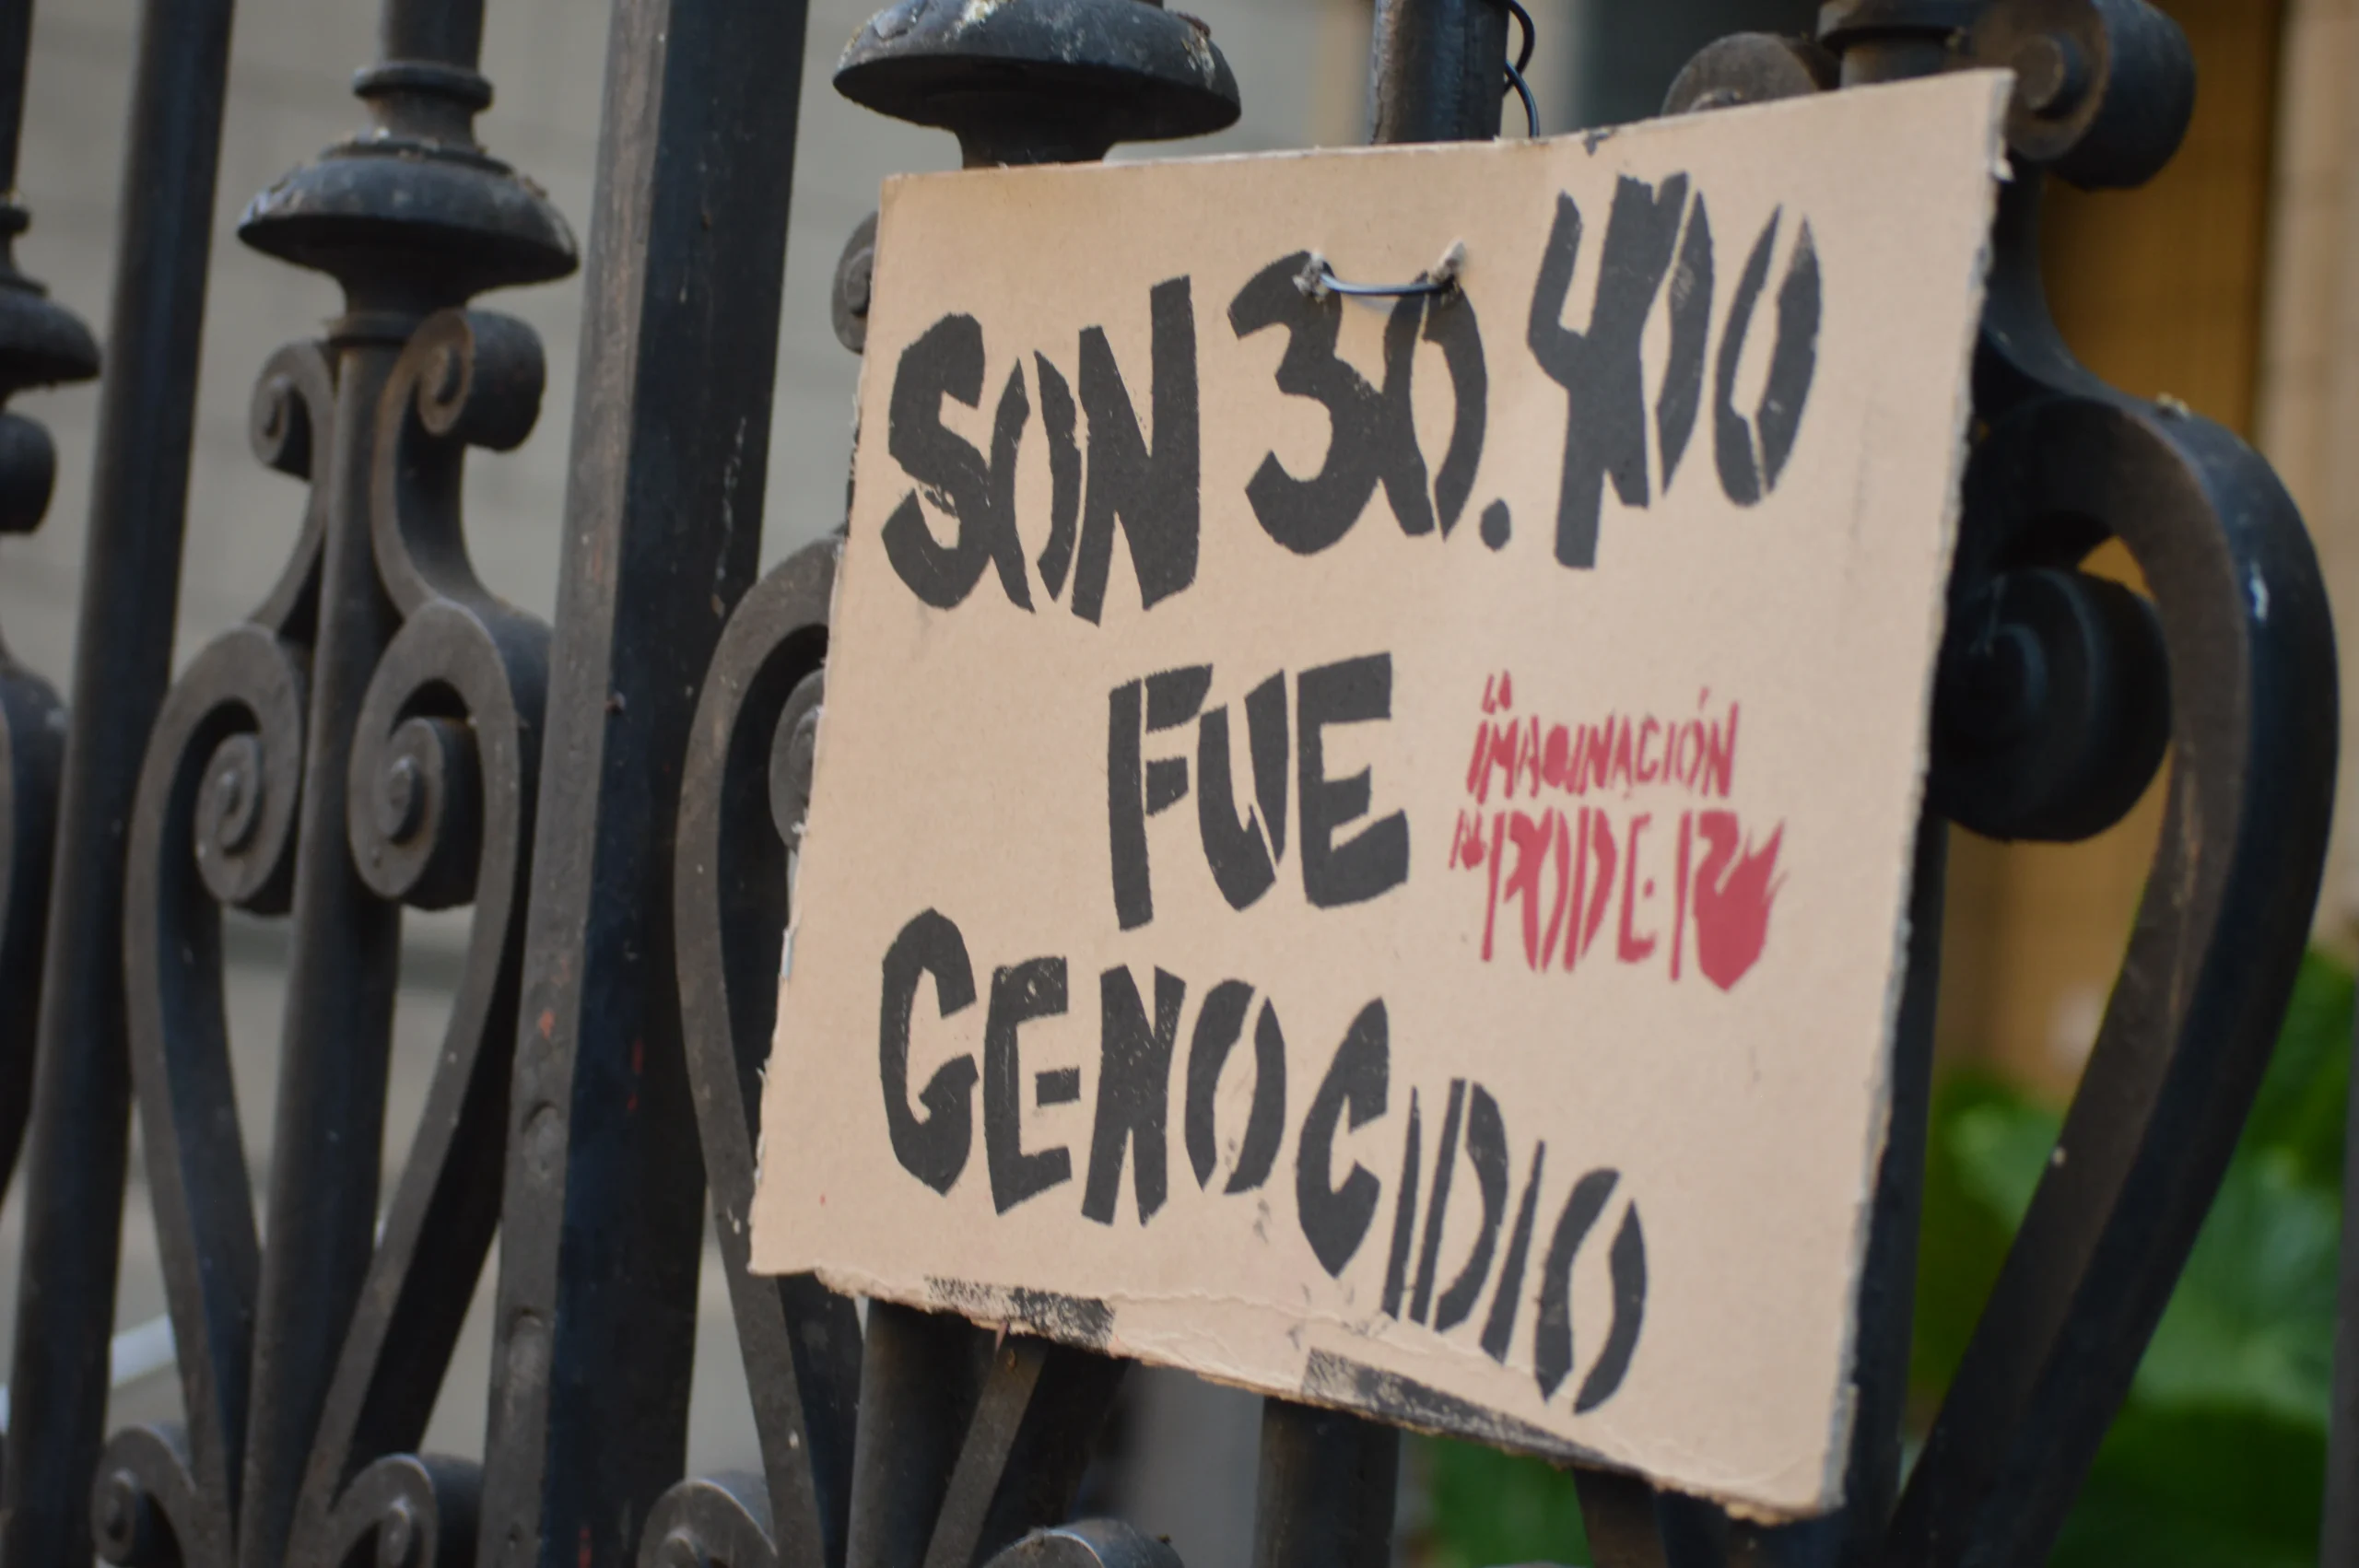 SON 30.400
FUE
GENOCIDIO
LA
IMAGINACIÓN
AL PODER